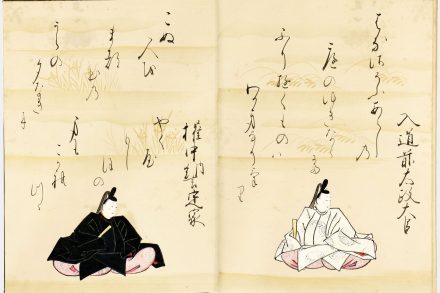 入道前太政大臣
はなさそふあらしの
庭のゆきならて
ふり行くものハ
わか身なりけり
権中納言定家
こぬ
人を
まつほの
うらの
夕なきに
やくや
もしほの
身も
こかれ
つゝ